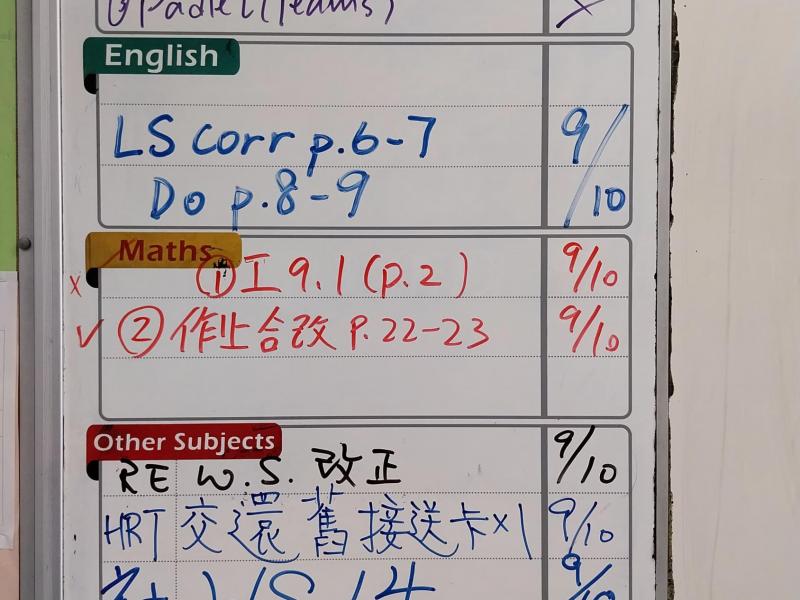 Padlet (Teams) X
English
LS corr p.6-7 9/10
Do p.8-9
Maths
x ① 工 9.1 (p.2) 9/10
✓ ② 作业合改 P.22-23 9/10
Other Subjects
RE W.S. 改正 9/10
HRT 交還舊接送卡×1 9/10
WS 14 9/10